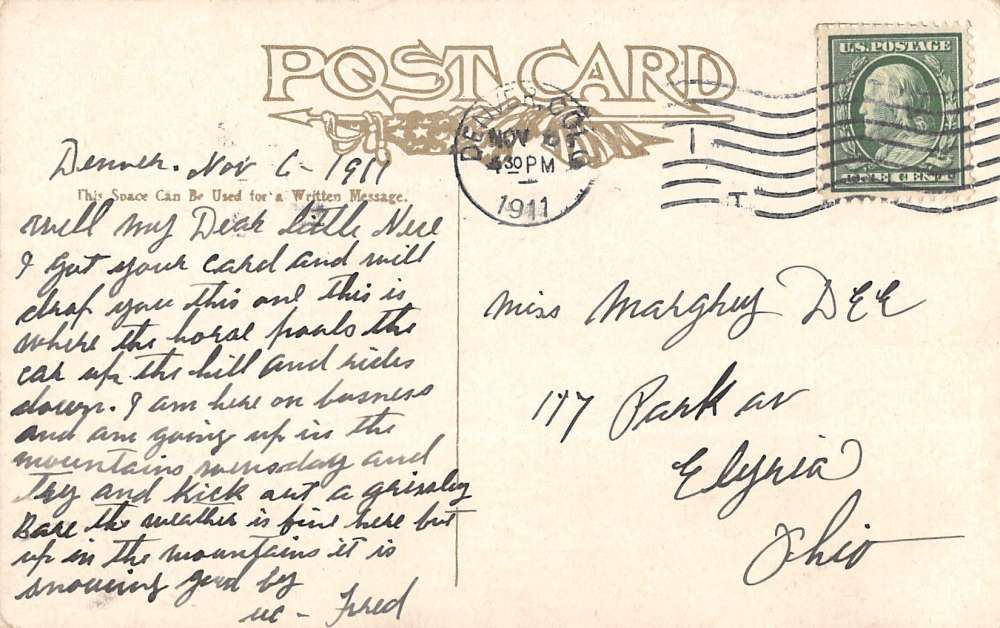 POST CARD
DENVER, COLO
NOV 6
4 30 PM
1911
U.S. POSTAGE
ONE CENT
Denver. Nov 6 - 1911
This Space Can Be Used for a Written Message.
Well my Dear little Nece
I got your card and will
drop you this one this is
where the horse pools the
car up the hill and rides
down. I am here on busness
and am going up in the
mountains wensday and
try and kick out a grissley
Bare the weather is fine here but
up in the mountains it is
snowing good by
uc - Fred
Miss Margrey DEE
117 Park av
Elyria
Ohio